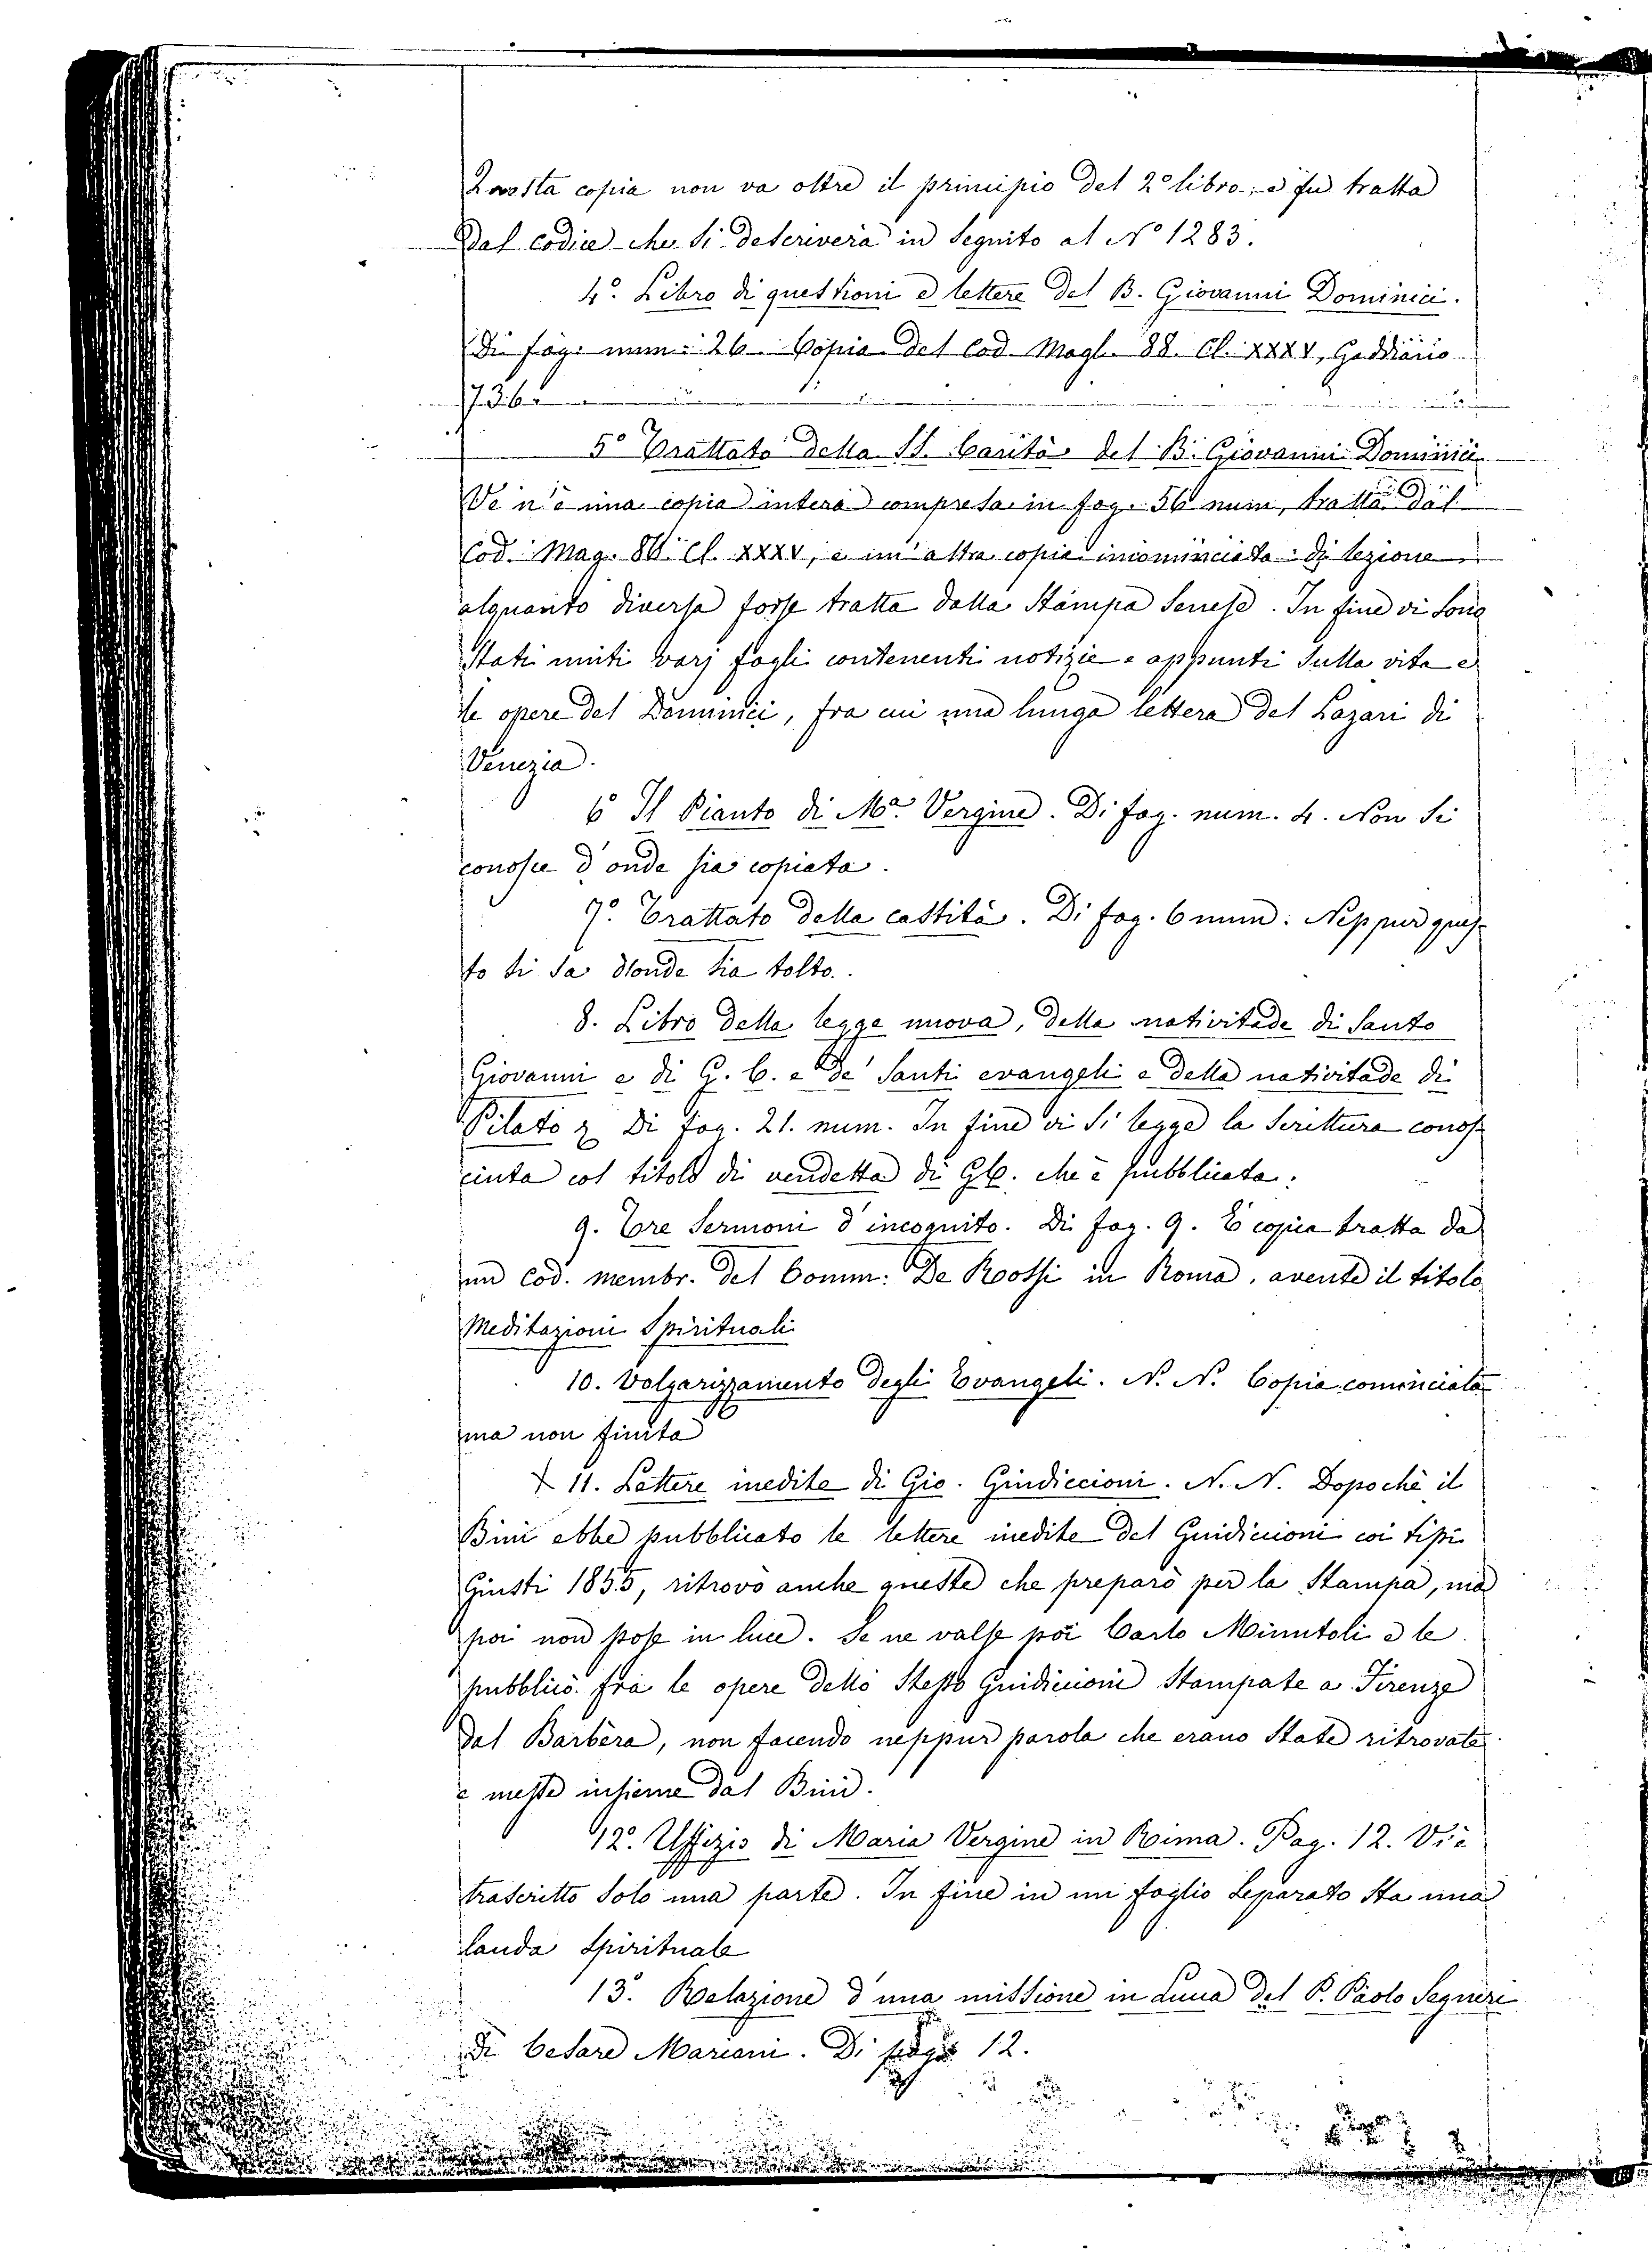 Questa copia non va oltre il principio del 2º libro, e fu tratta
dal codice che si descriverà in seguito al Nº 1283.
4º. Libro di questioni e lettere del B. Giovanni Dominici.
Di fog. num. 26. Copia del Cod. Magl. 88. Cl. XXXV, Gaddiano
736.
5º Trattato della SS. Carità del B. Giovanni Dominici
Ve n'è una copia intera compresa in fog. 56 num, tratta dal
Cod. Mag. 88. Cl. XXXV, e un'altra copia incominciata di lezione
alquanto diversa forse tratta dalla Stampa Senese. In fine vi sono
stati uniti varj fogli contenenti notizie e appunti sulla vita e
le opere del Dominici, fra cui una lunga lettera del Lazari di
Venezia.
6º Il Pianto di Mª. Vergine. Di fog. num. 4. Non si
conosce d'onde sia copiata.
7º. Trattato della castità. Di fog. 6 num. Neppur ques-
to si sa donde sia tolto.
8. Libro della legge nuova, della natività de di Santo
Giovanni e di G. C. e de' Santi evangeli e della nativitade di
Pilato Di fog. 21. num. In fine vi si legge la scrittura conos-
ciuta col titolo di vendetta di G.C. che è pubblicata.
9. Tre Sermoni d'incognito. Di fog. 9. È copia tratta da
un cod. membr. del Comm. De Rossi in Roma, avente il titolo
Meditazioni Spirituali
10. Volgarizzamento degli Evangeli. N. N. Copia cominciata
ma non finita
11. Lettere inedite di Gio. Guidiccioni. N. N. Dopochè il
Bini ebbe pubblicato le lettere inedite del Guidiccioni coi tipi
Giusti 1855, ritrovò anche queste che preparò per la Stampa, ma
poi non pose in luce. Se ne valse poi Carlo Minutoli e le
pubblicò fra le opere dello stesso Guidiccioni Stampate a Firenze
dal Barbèra, non facendo neppur parola che erano state ritrovate
e messe insieme dal Bini.
12º. Uffizio di Maria Vergine in Rima. Pag. 12. Vi è
trascritto solo una parte. In fine in un foglio separato sta una
lauda spirituale
13º. Relazione d'una missione in Lucca del P. Paolo Segneri
di Cesare Mariani. Di pag. 12.